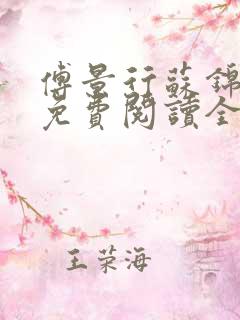 傅景行蘇錦
免費閱讀全
王荣海